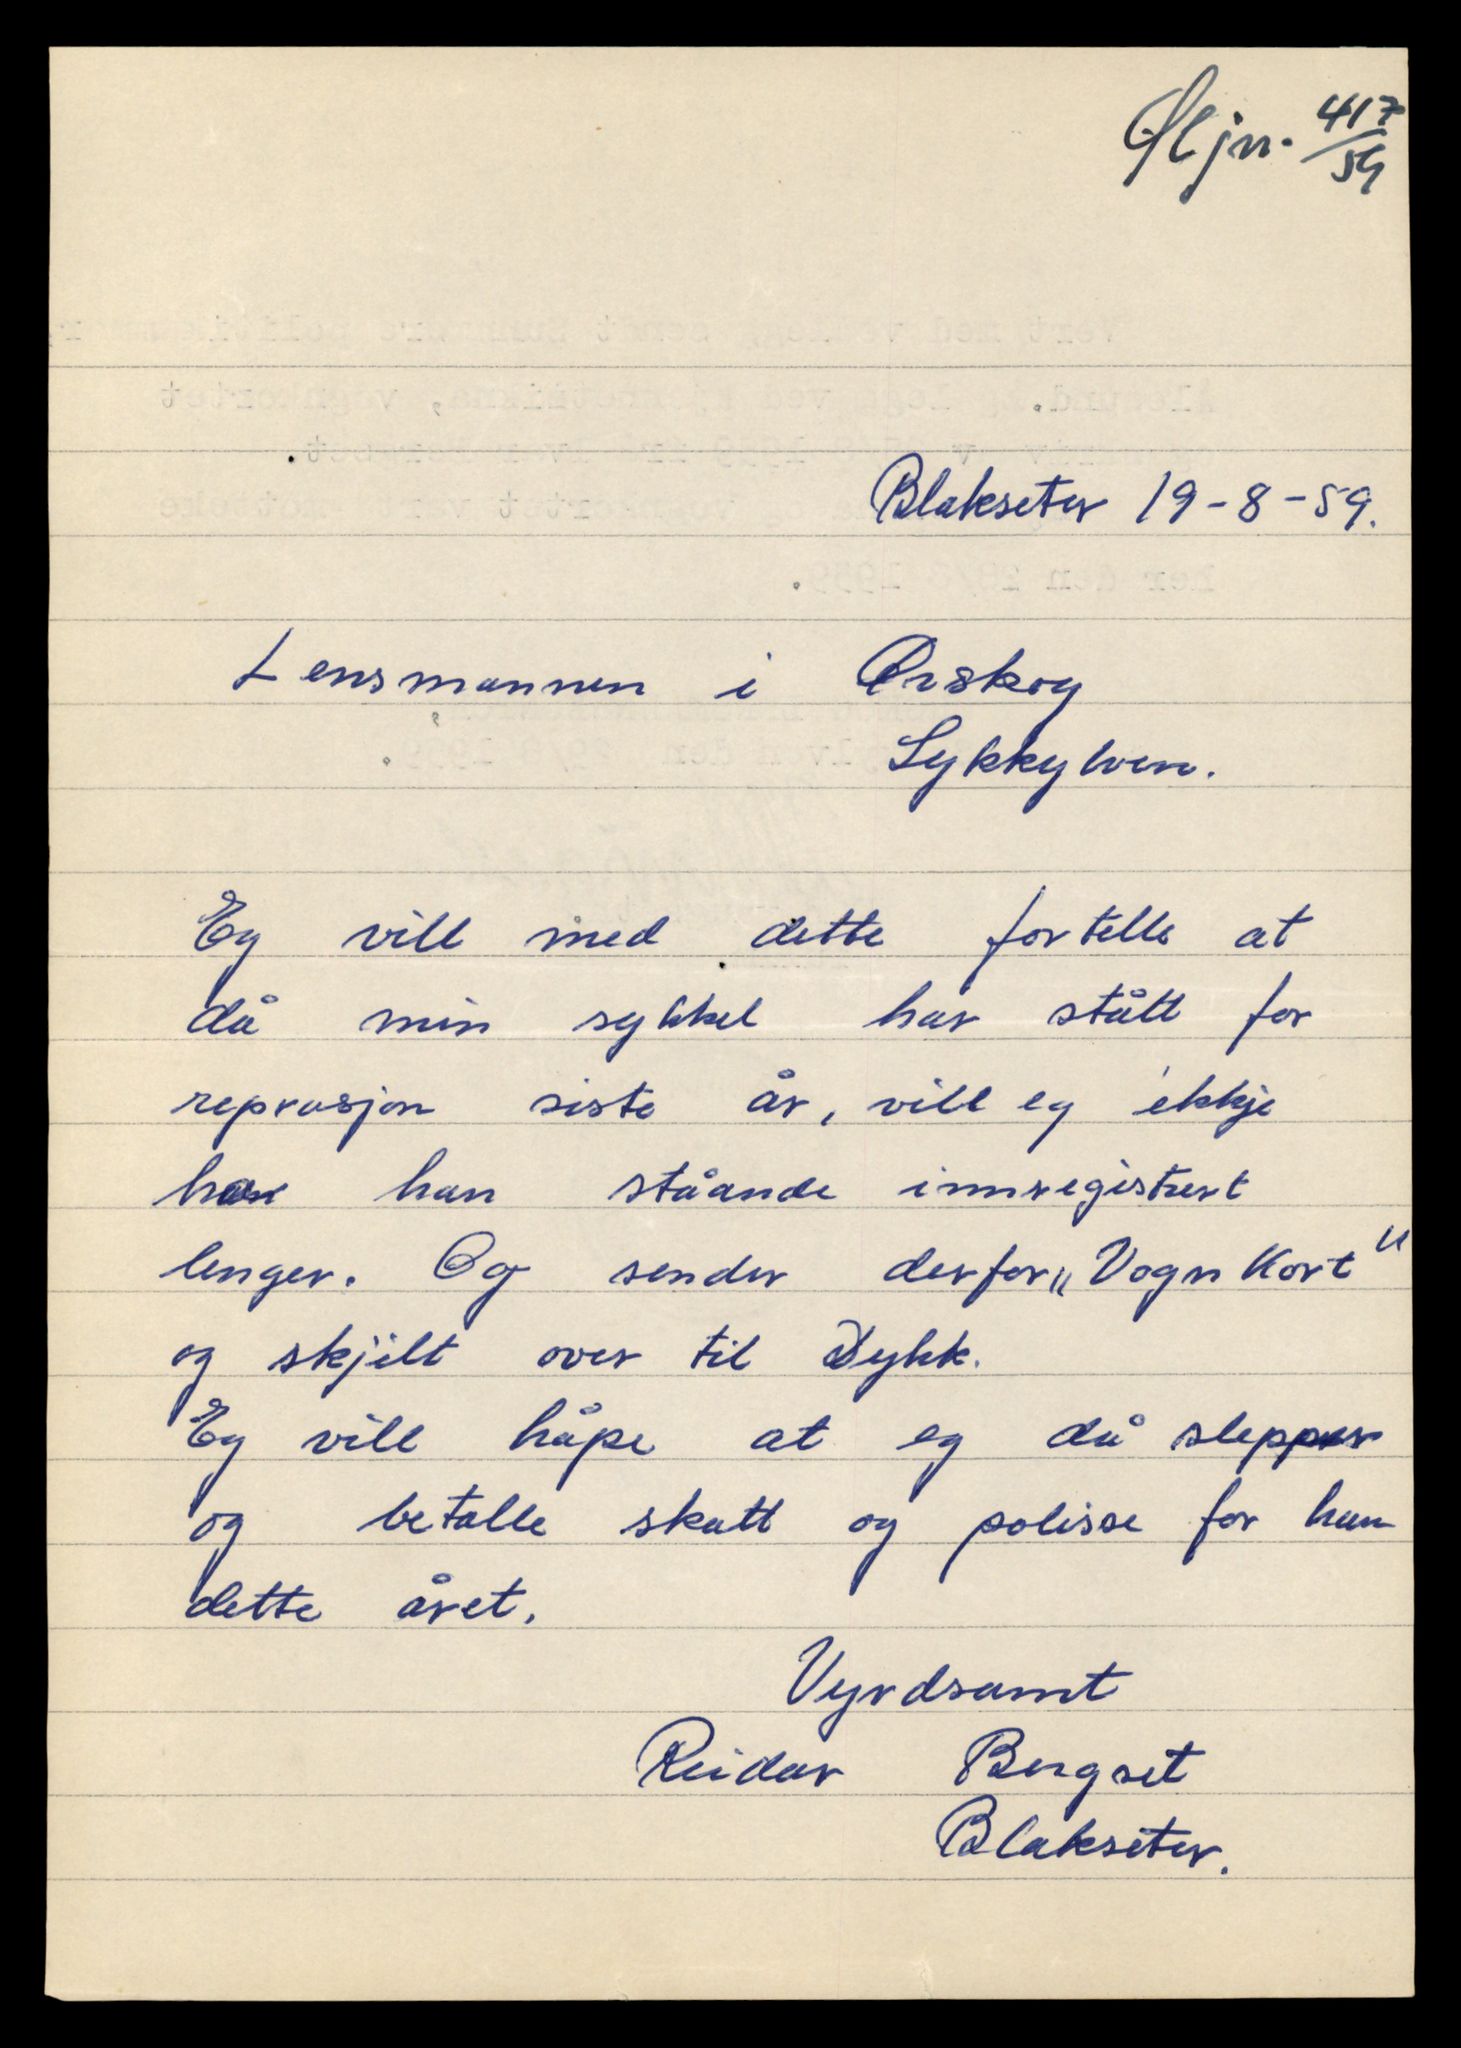 Øljn. 417/59
Blakseter 19-8-59.
Lensmannen i Ørskog
Sykkylven.
Eg vill med dette fortelle at
då min sykkel har stått for
reprasjon siste år, vill eg ikkje
han ståande innregistrert
lenger. Og sender derfor „Vogn Kort"
og skjilt over til Dykk.
Eg vill håpe at eg då slepper
og betalle skatt og polisse for han
dette året.
Vyrdsamt
Reidar Bergset
Blakseter.